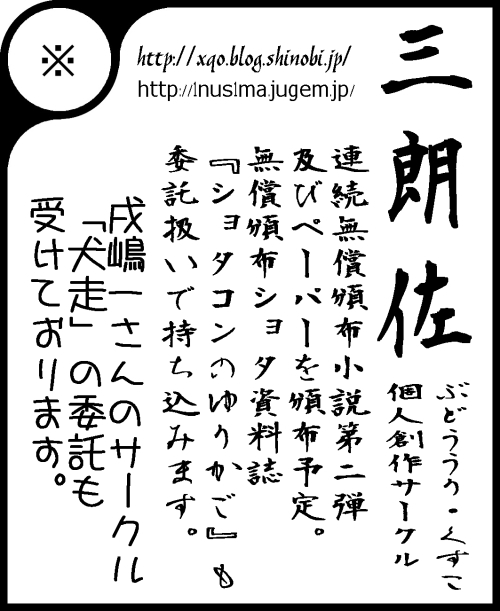 ※
http://xqo.blog.shinobi.jp/
http://1nus1ma.jugem.jp/
三朗佐
ぶどううり・くすこ
個人創作サークル
連続無償頒布小説第二弾
及びペーパーを頒布予定。
無償頒布ショタ資料誌
『ショタコンのゆりかご』も
委託扱いで持ち込みます。
戌嶋一さんのサークル
「犬走」の委託も
受けております。